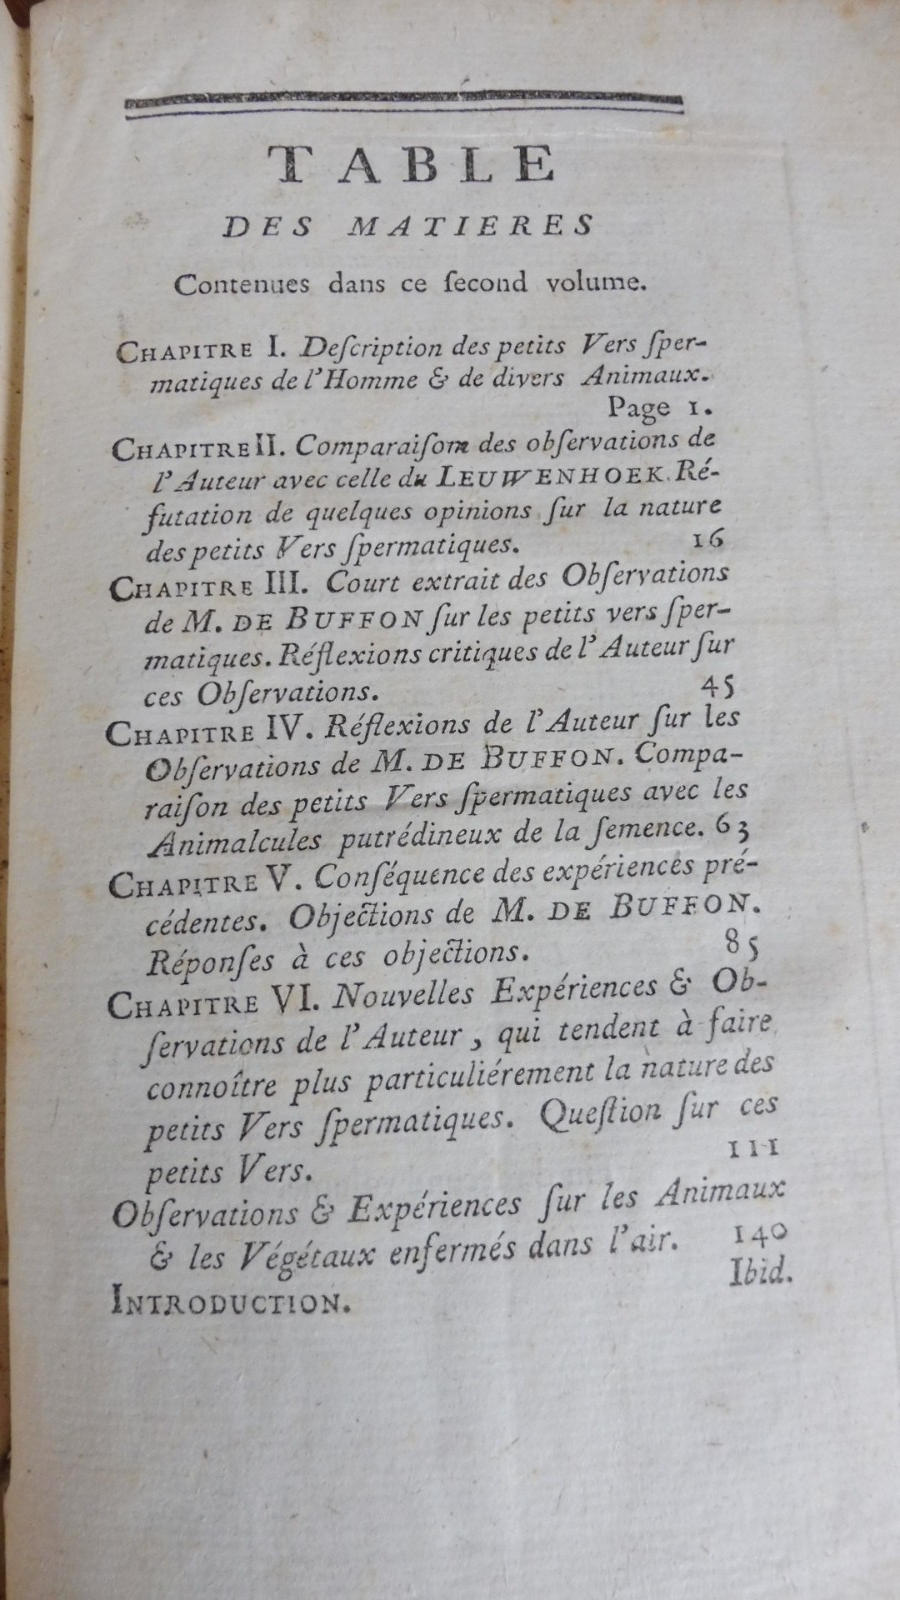 TABLE
DES MATIERES
Contenues dans ce ſecond volume.
CHAPITRE I. Deſcription des petits Vers ſper-
matiques de l'Homme & de divers Animaux.
Page 1.
CHAPITRE II. Comparaiſom des obſervations de
l'Auteur avec celle du LEUWENHOEK. Ré-
futation de quelques opinions ſur la nature
des petits Vers ſpermatiques. 16
CHAPITRE III. Court extrait des Obſervations
de M. DE BUFFON ſur les petits vers ſper-
matiques. Réflexions critiques de l'Auteur ſur
ces Obſervations. 45
CHAPITRE IV. Réflexions de l'Auteur ſur les
Obſervations de M. DE BUFFON. Compa-
raiſon des petits Vers ſpermatiques avec les
Animalcules putrédineux de la ſemence. 63
CHAPITRE V. Conſéquence des expériences pré-
cédentes. Objections de M. DE BUFFON.
Réponſes à ces objections. 85
CHAPITRE VI. Nouvelles Expériences & Ob-
ſervations de l'Auteur, qui tendent à faire
connoître plus particuliérement la nature des
petits Vers ſpermatiques. Queſtion ſur ces
petits Vers. 111
Obſervations & Expériences ſur les Animaux
& les Végétaux enfermés dans l'air. 140
INTRODUCTION. Ibid.